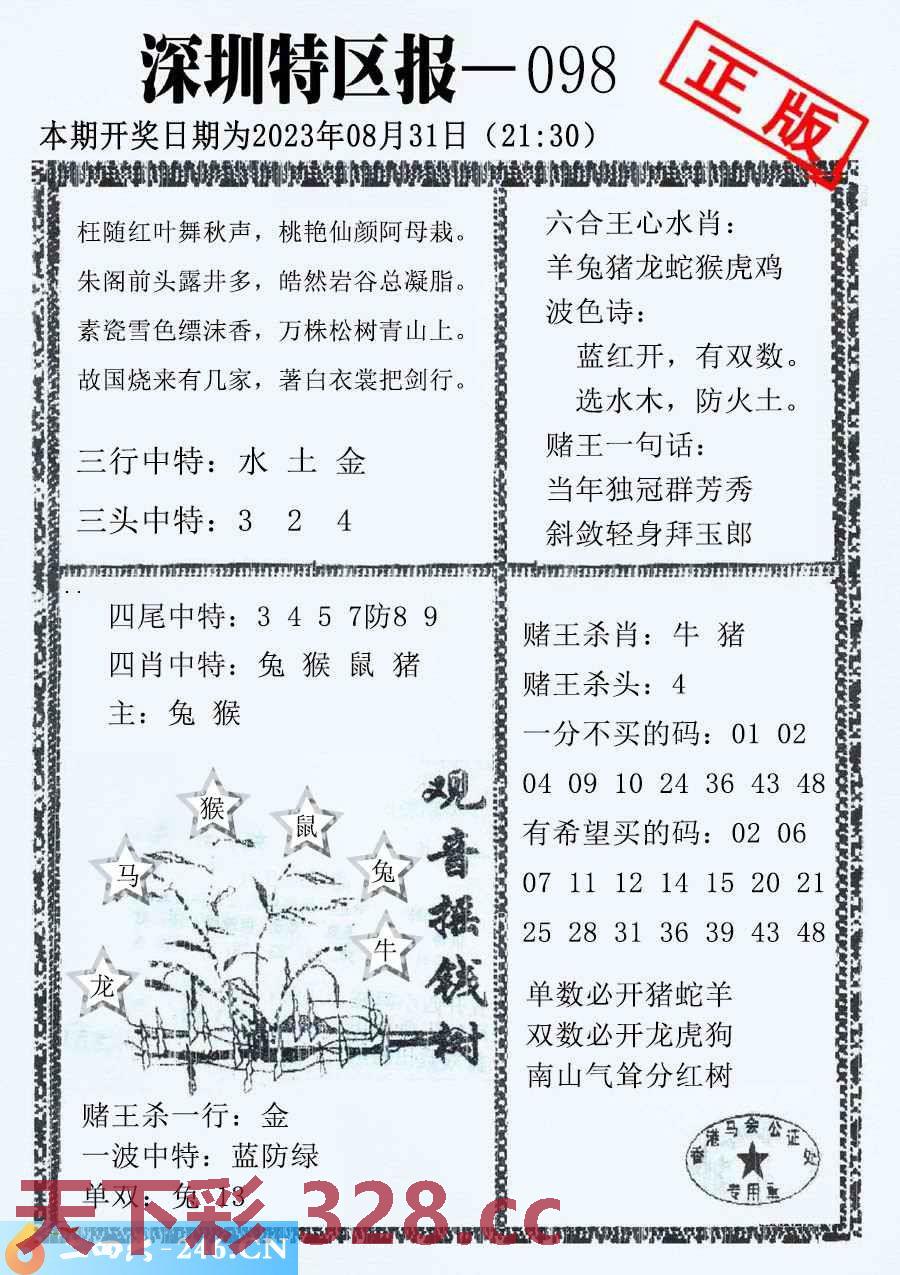 深圳特区报—098
正版
本期开奖日期为2023年08月31日（21:30）
枉随红叶舞秋声，桃艳仙颜阿母栽。
朱阁前头露井多，皓然岩谷总凝脂。
素瓷雪色缥沫香，万株松树青山上。
故国烧来有几家，著白衣裳把剑行。
三行中特：水 土 金
三头中特：3 2 4
六合王心水肖：
羊兔猪龙蛇猴虎鸡
波色诗：
蓝红开，有双数。
选水木，防火土。
赌王一句话：
当年独冠群芳秀
斜敛轻身拜玉郎
四尾中特：3 4 5 7防8 9
四肖中特：兔 猴 鼠 猪
主：兔 猴
观音摇钱树
猴
鼠
马
兔
牛
龙
赌王杀一行：金
一波中特：蓝防绿
单双：兔 13
赌王杀肖：牛 猪
赌王杀头：4
一分不买的码：01 02
04 09 10 24 36 43 48
有希望买的码：02 06
07 11 12 14 15 20 21
25 28 31 36 39 43 48
单数必开猪蛇羊
双数必开龙虎狗
南山气耸分红树
香港马会公证处
专用章
天下彩 328.cc
-246.CN